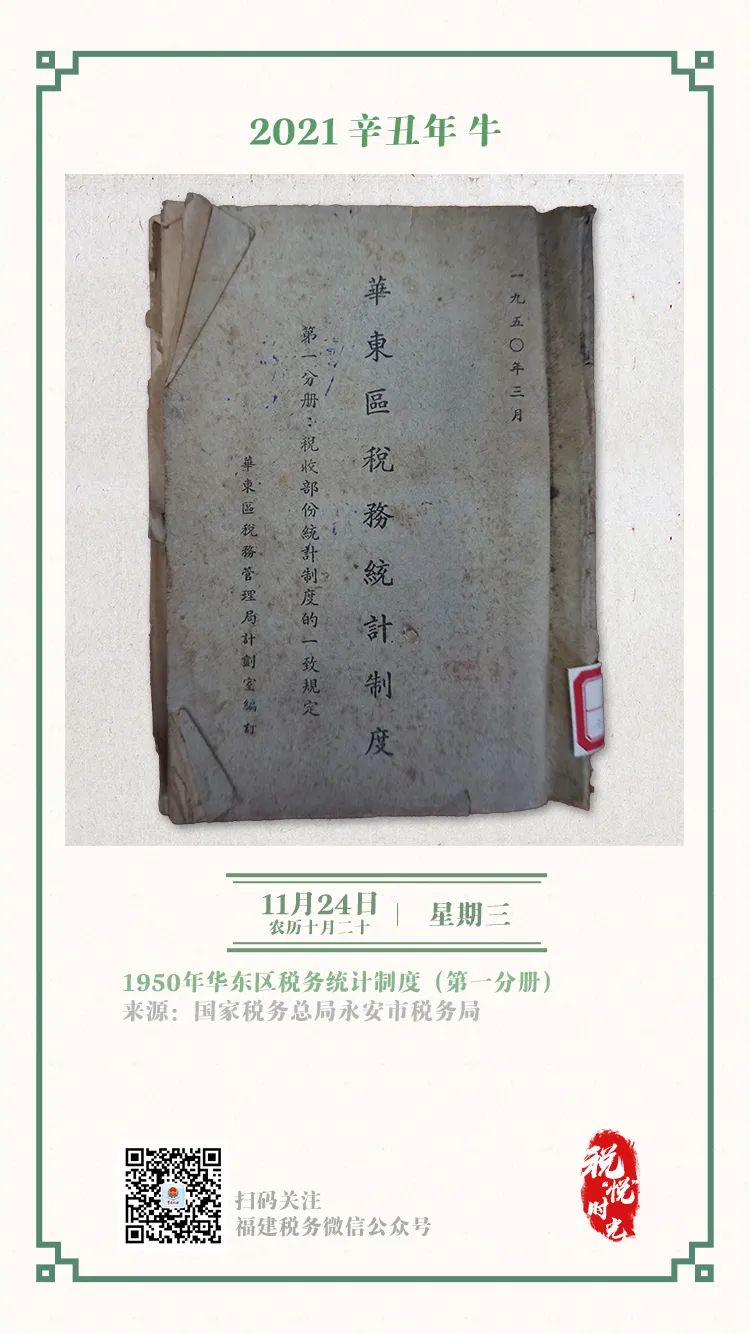 2021 辛丑年 牛
一九五〇年三月
華東區税務統計制度
第一分册：税收部份統計制度的一致規定
華東區税務管理局計劃室編訂
11月24日
农历十月二十
星期三
1950年华东区税务统计制度（第一分册）
来源：国家税务总局永安市税务局
扫码关注
福建税务微信公众号
税
“悦”
时
光